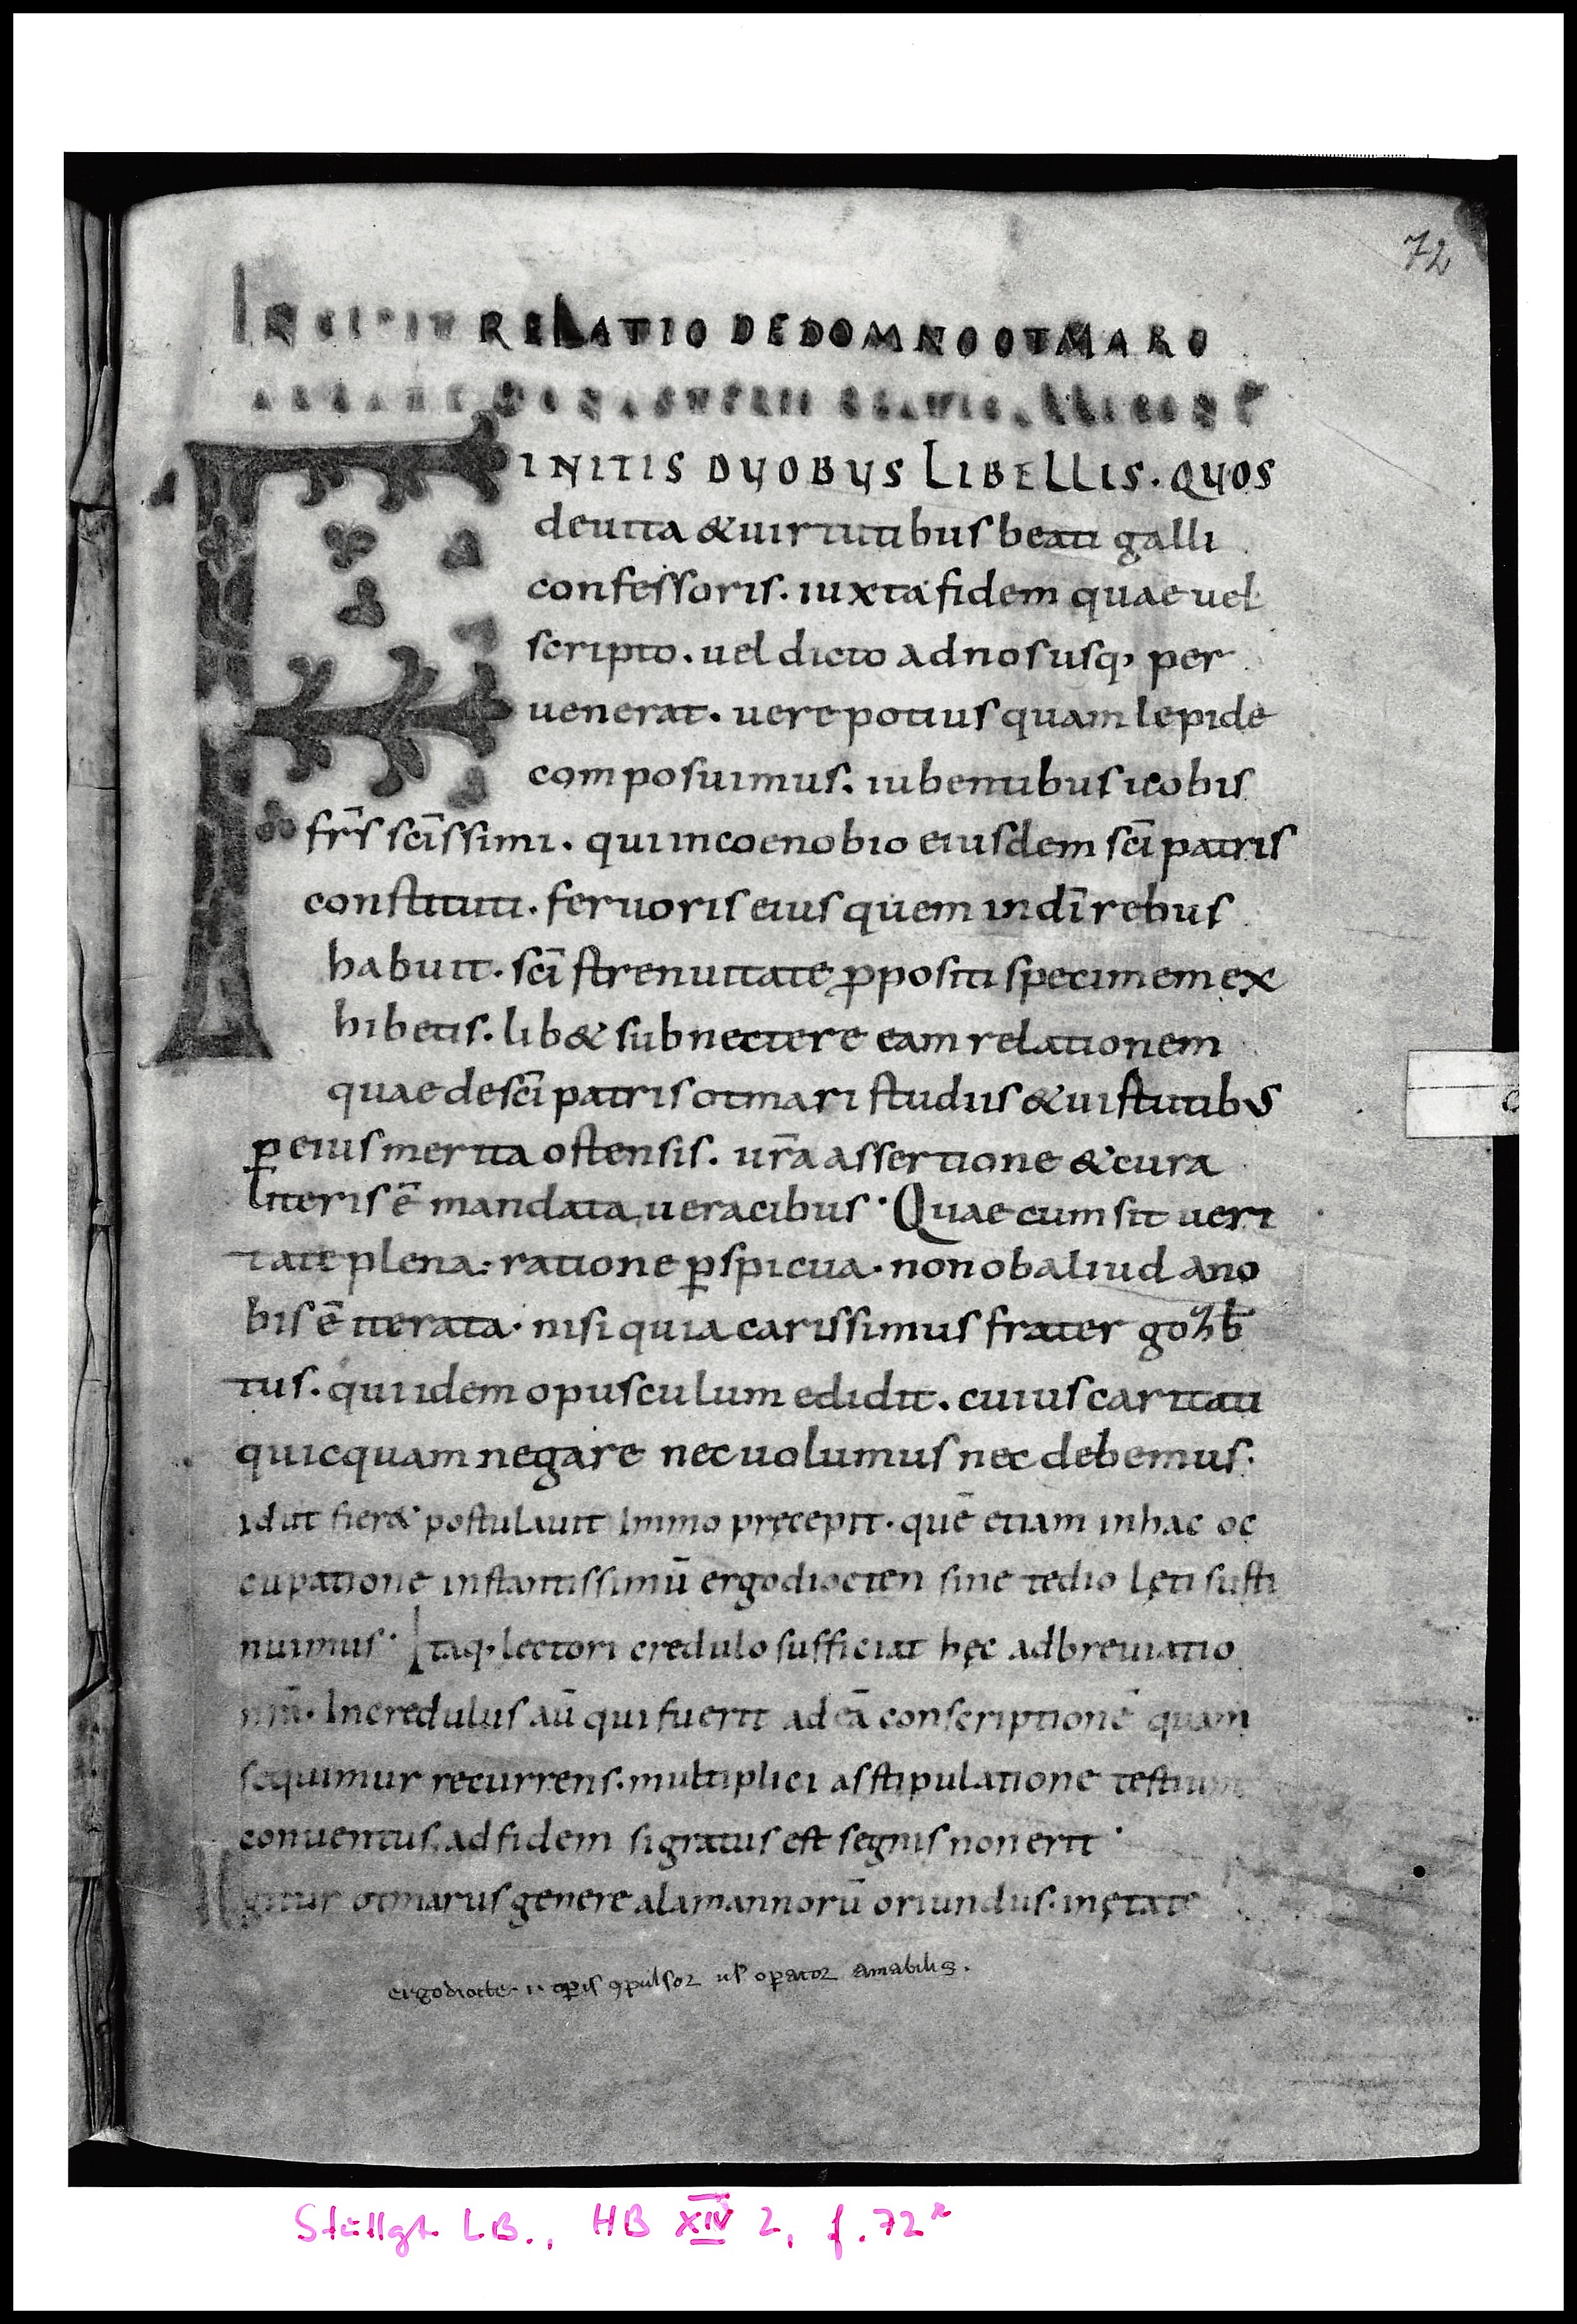 72
INCIPIT RELATIO DE DOMNO OTMARO
ABBATE MONASTERII
FINITIS DUOBUS LIBELLIS. QUOS
de uita & uirtutibus beati galli
confessoris. iuxta fidem quae uel
scripto. uel dicto ad nos usq; per
uenerat. uere potius quam lepide
composuimus. iubentibus uobis
fr̄s sc̄issimi. qui in coenobio eiusdem sc̄i patris
constituti. feruoris eius quem in dī rebus
habuit. sc̄i strenuitate ꝓpositi specimem ex
hibetis. lib& subnectere eam relationem
quae de sc̄i patris otmari studiis & uistutibus
ꝑ eius merita ostensis. ur̄a assertione & cura
literis ē mandata ueracibus· Quae cum sit ueri
tate plena: ratione ꝑspicua. non ob aliud a no
bis ē iterata. nisi quia carissimus frater gozb̄
tus. qui idem opusculum edidit. cuius caritati
quicquam negare nec uolumus nec debemus.
id ut fier& postulauit immo pręcepit. quē etiam in hac oc
cupatione instantissimū ergodiocten sine tedio lęti susti
nuimus· Itaq; lectori credulo sufficiat hęc adbreuiatio
Incredulus aū qui fuerit ad eā conscriptionē quam
sequimur recurrens. multiplici asstipulatione testium
conuentus. ad fidem si gratus est segnis non erit·
Igitur otmarus genere alamannorū oriundus. in ętate
ergodiocte· .i. oꝑis ꝯpulsor ul̄ oꝑator amabilis.
Stuttgt. LB., HB XIV 2, f. 72r